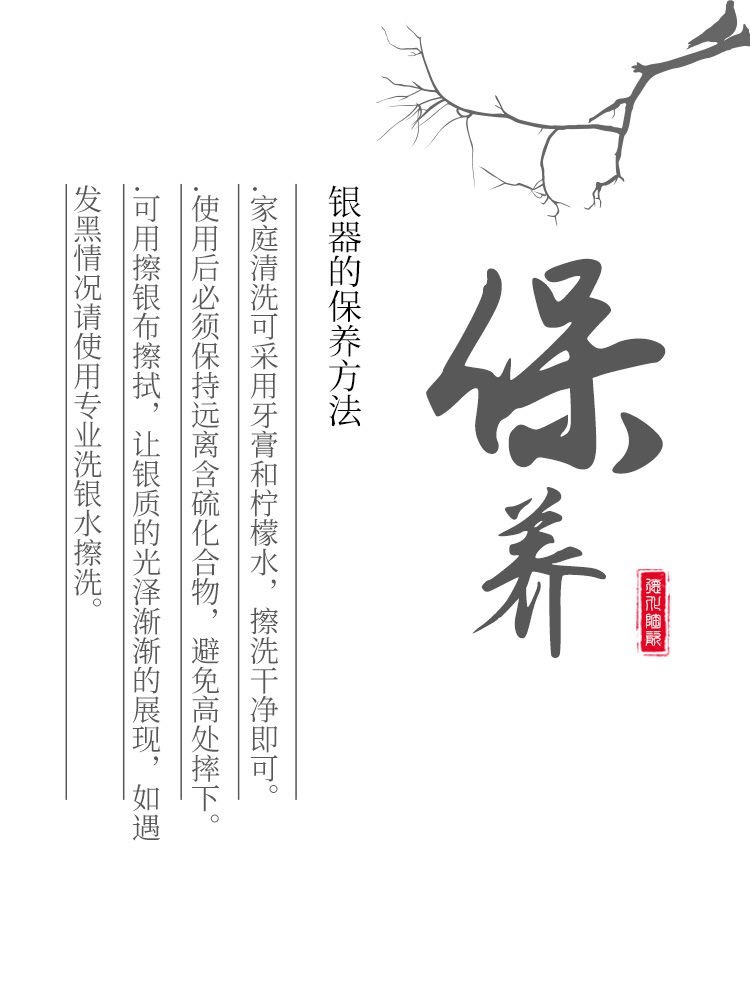 保养
银器的保养方法
·家庭清洗可采用牙膏和柠檬水，擦洗干净即可。
·使用后必须保持远离含硫化合物，避免高处摔下。
·可用擦银布擦拭，让银质的光泽渐渐的展现，如遇
发黑情况请使用专业洗银水擦洗。